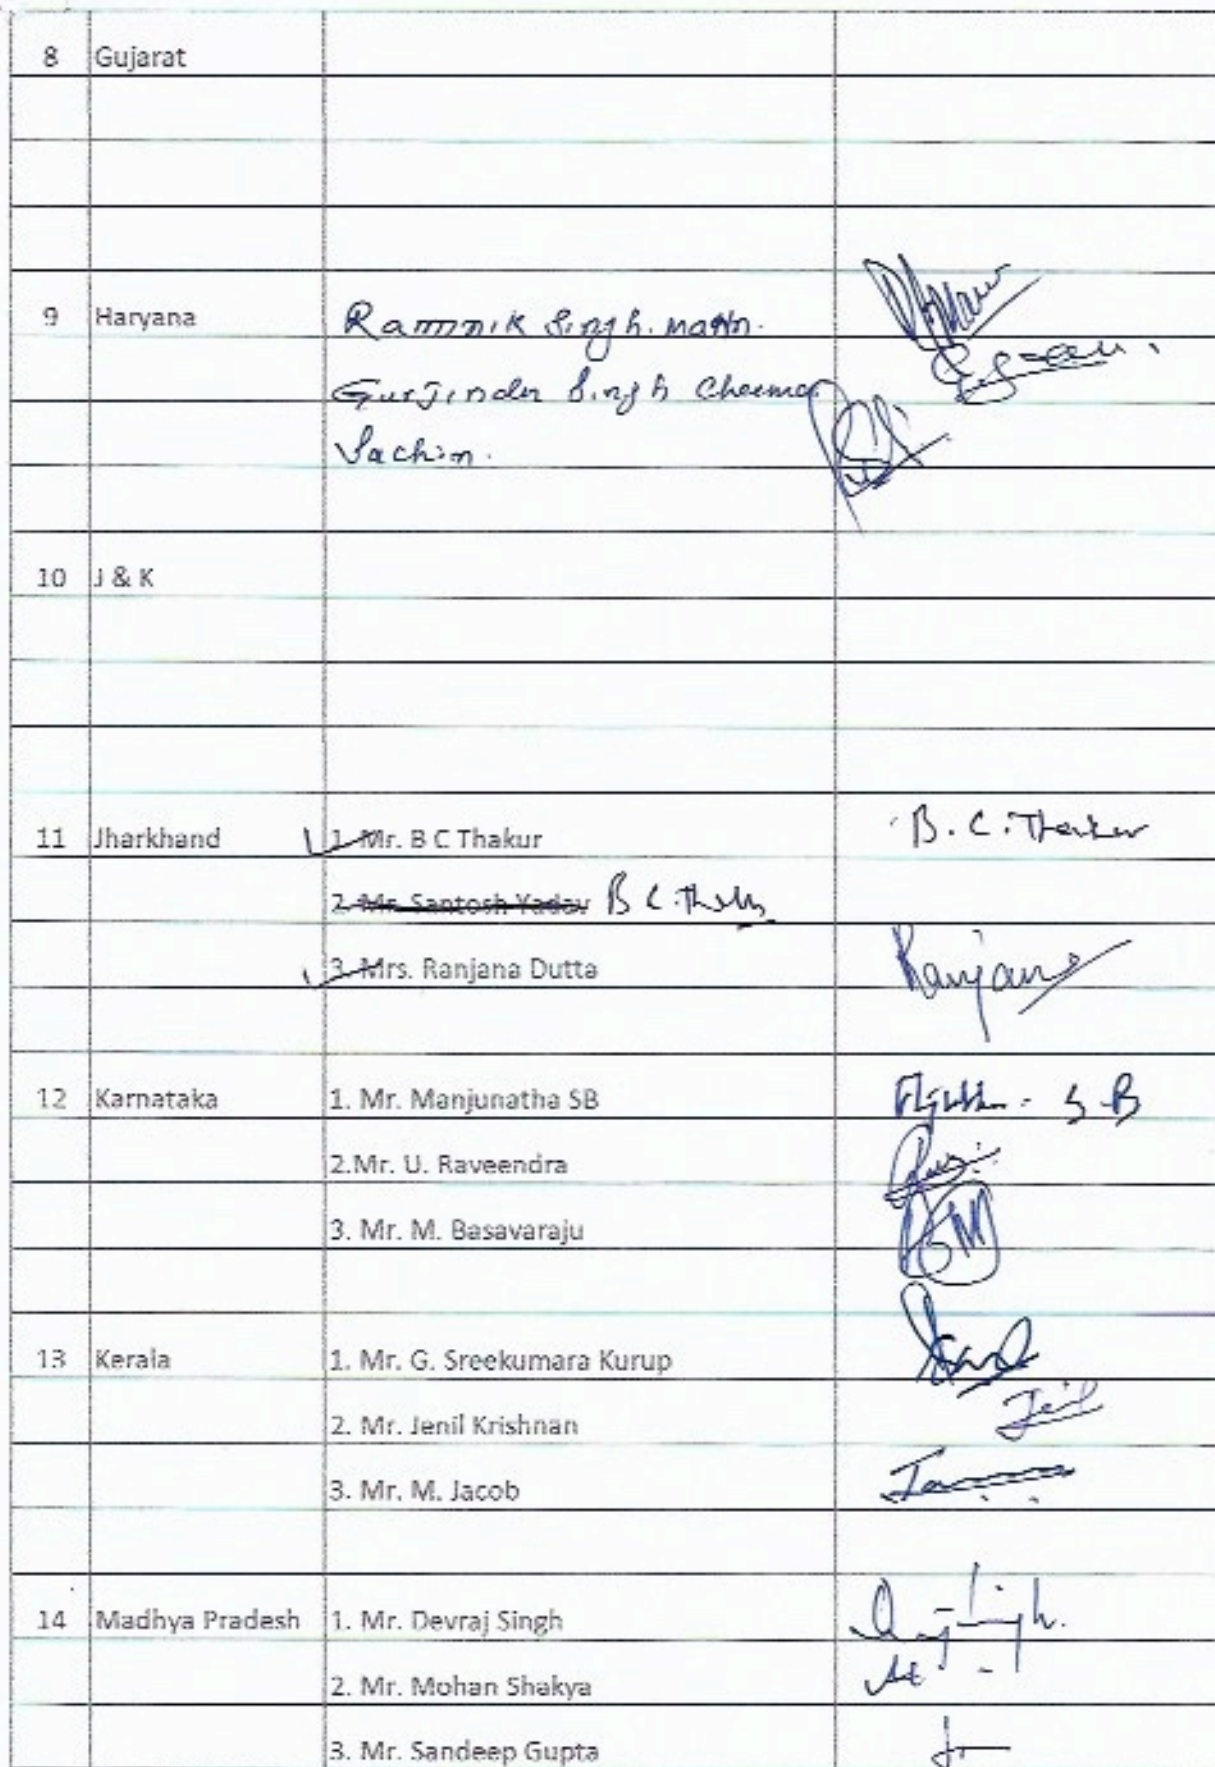 8 Gujarat
9 Haryana Ramnik Singh
Gurjinder Singh Cheema
Sachin.
10 J & K
11 Jharkhand 1. Mr. B C Thakur B. C. Thakur
2. Mr. Santosh Yadav B C
3. Mrs. Ranjana Dutta Ranjana
12 Karnataka 1. Mr. Manjunatha SB S.B
2.Mr. U. Raveendra
3. Mr. M. Basavaraju
13 Kerala 1. Mr. G. Sreekumara Kurup
2. Mr. Jenil Krishnan
3. Mr. M. Jacob
14 Madhya Pradesh 1. Mr. Devraj Singh Singh
2. Mr. Mohan Shakya
3. Mr. Sandeep Gupta